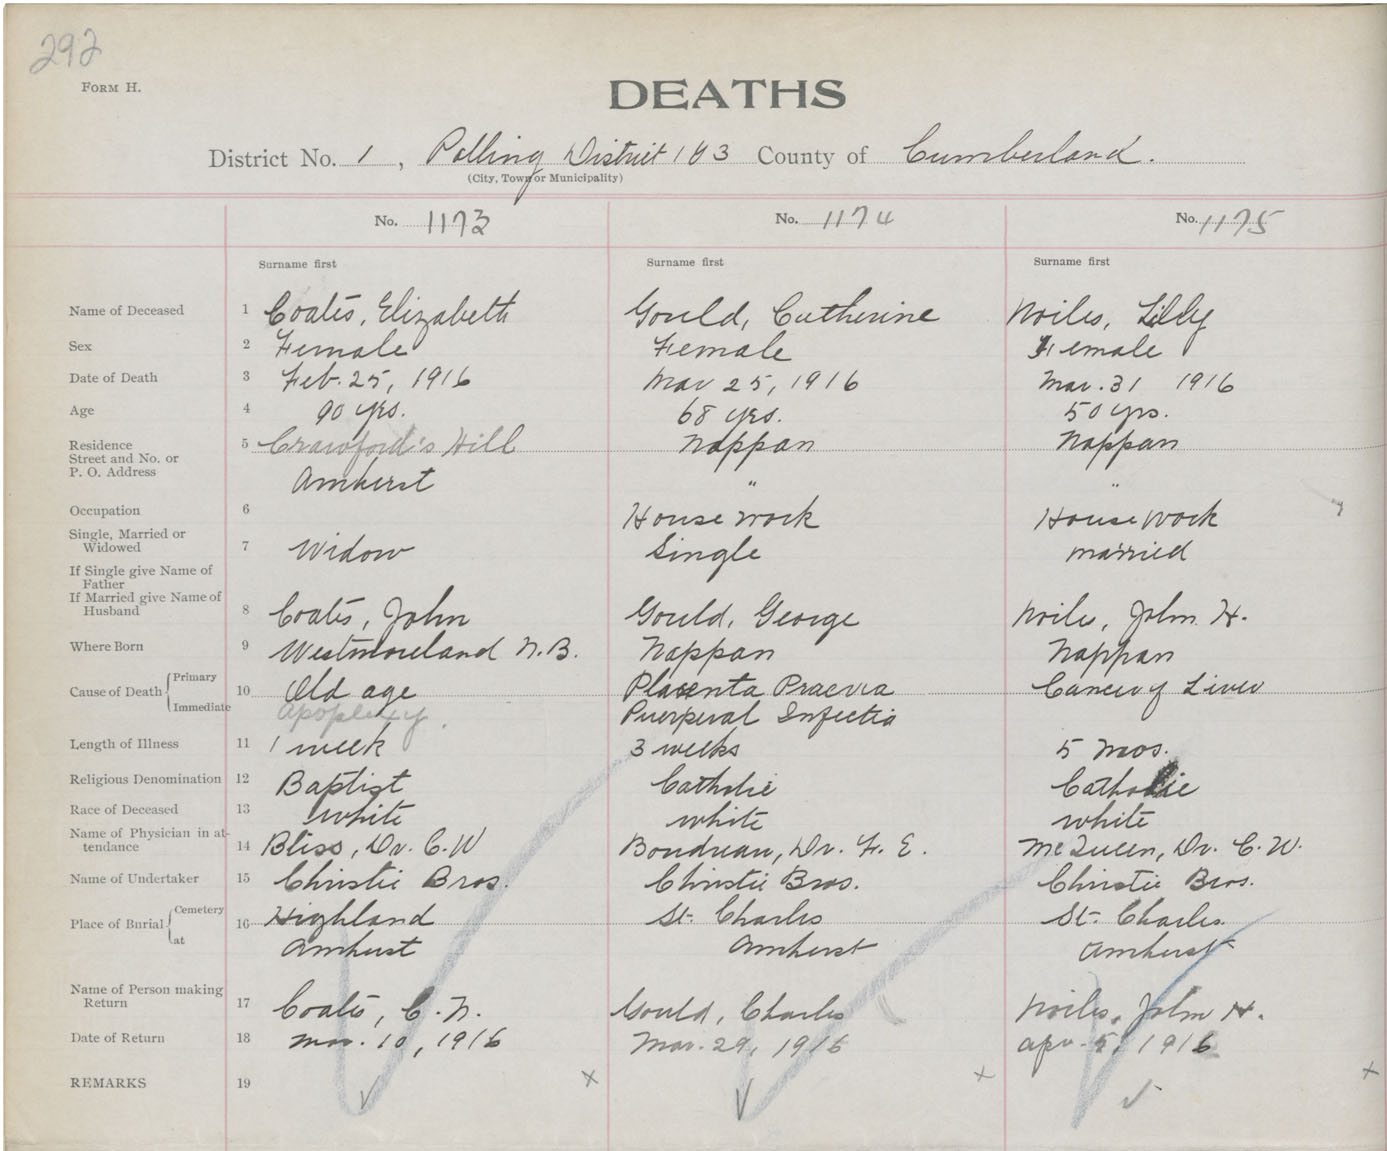 292
FORM H.
DEATHS
District No. 1, Polling District 103 County of Cumberland.
(City, Town or Municipality)
No. 1173 No. 1174 No. 1175
Surname first Surname first Surname first
Name of Deceased 1 Coates, Elizabeth Gould, Cutherine Noiles, Lilly
Sex 2 Female Female Female
Date of Death 3 Feb. 25, 1916 Mar 25, 1916 Mar. 31 1916
Age 4 90 yrs. 68 yrs. 50 yrs.
Residence 5 Crawford's Hill Nappan Nappan
Street and No. or
P. O. Address Amherst " "
Occupation 6 House work House work
Single, Married or
Widowed 7 Widow Single married
If Single give Name of
Father
If Married give Name of
Husband 8 Coates, John Gould, George Noiles, John H.
Where Born 9 Westmoreland N.B. Nappan Nappan
Cause of Death Primary 10 Old age Placenta Praevia Cancer of Liver
Immediate Apoplexy. Puerperal Infectio
Length of Illness 11 1 week 3 weeks 5 mos.
Religious Denomination 12 Baptist Catholic Catholic
Race of Deceased 13 white white white
Name of Physician in at-
tendance 14 Bliss, Dr. C.W Boudreau, Dr. F. E. McQueen, Dr. C.W.
Name of Undertaker 15 Christie Bros. Christie Bros. Christie Bros.
Place of Burial Cemetery 16 Highland St. Charles St. Charles
at Amherst Amherst Amherst
Name of Person making
Return 17 Coates, C. N. Gould, Charles Noiles, John H.
Date of Return 18 Mar. 10, 1916 Mar. 29, 1916 apr. 5, 1916
REMARKS 19 x x x